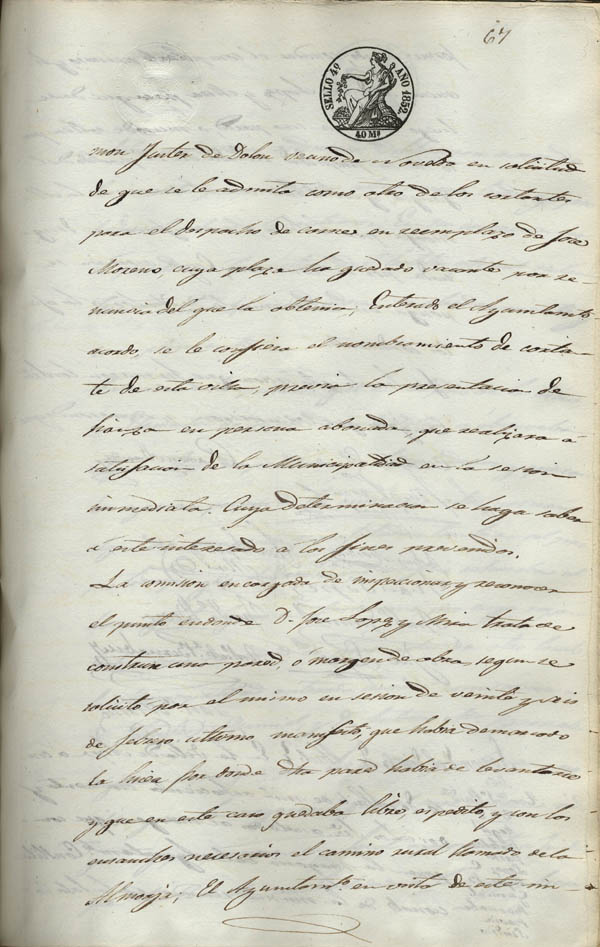 67
SELLO 4º AÑO 1852.
40 Ms
mon Juster de Dolon vecino de Novelda en solicitud
de que se le admita como otro de los cortantes
para el despacho de carne, en reemplazo de Jose
Moreno, cuya plaza ha quedado vacante por re-
nuncia del que la obtenia; Enterado el Ayuntamto
acordó, se le confiera el nombramiento de cortan-
te de esta villa, previa la presentacion de
fianza en persona abonada, que realizara á
satisfacion de la Municipalidad en la sesion
inmediata. Cuya determinacion se haga saber
á este interesado á los fines prevenidos.
La comision encargada de inspeccionar y reconocer
el punto en donde D. Jose Lopez y Mira trata de
construir una pared ó margen de obra, segun se
solicitó por el mismo en sesion de veinte y seis
de febrero ultimo manifestó, que habia demarcado
la linea por donde dha pared habia de levantarse
y que en este caso quedaba libre, espedito, y con los
ensanches necesarios el camino rural llamado de la
Almorja; El Ayuntamto en vista de este in-